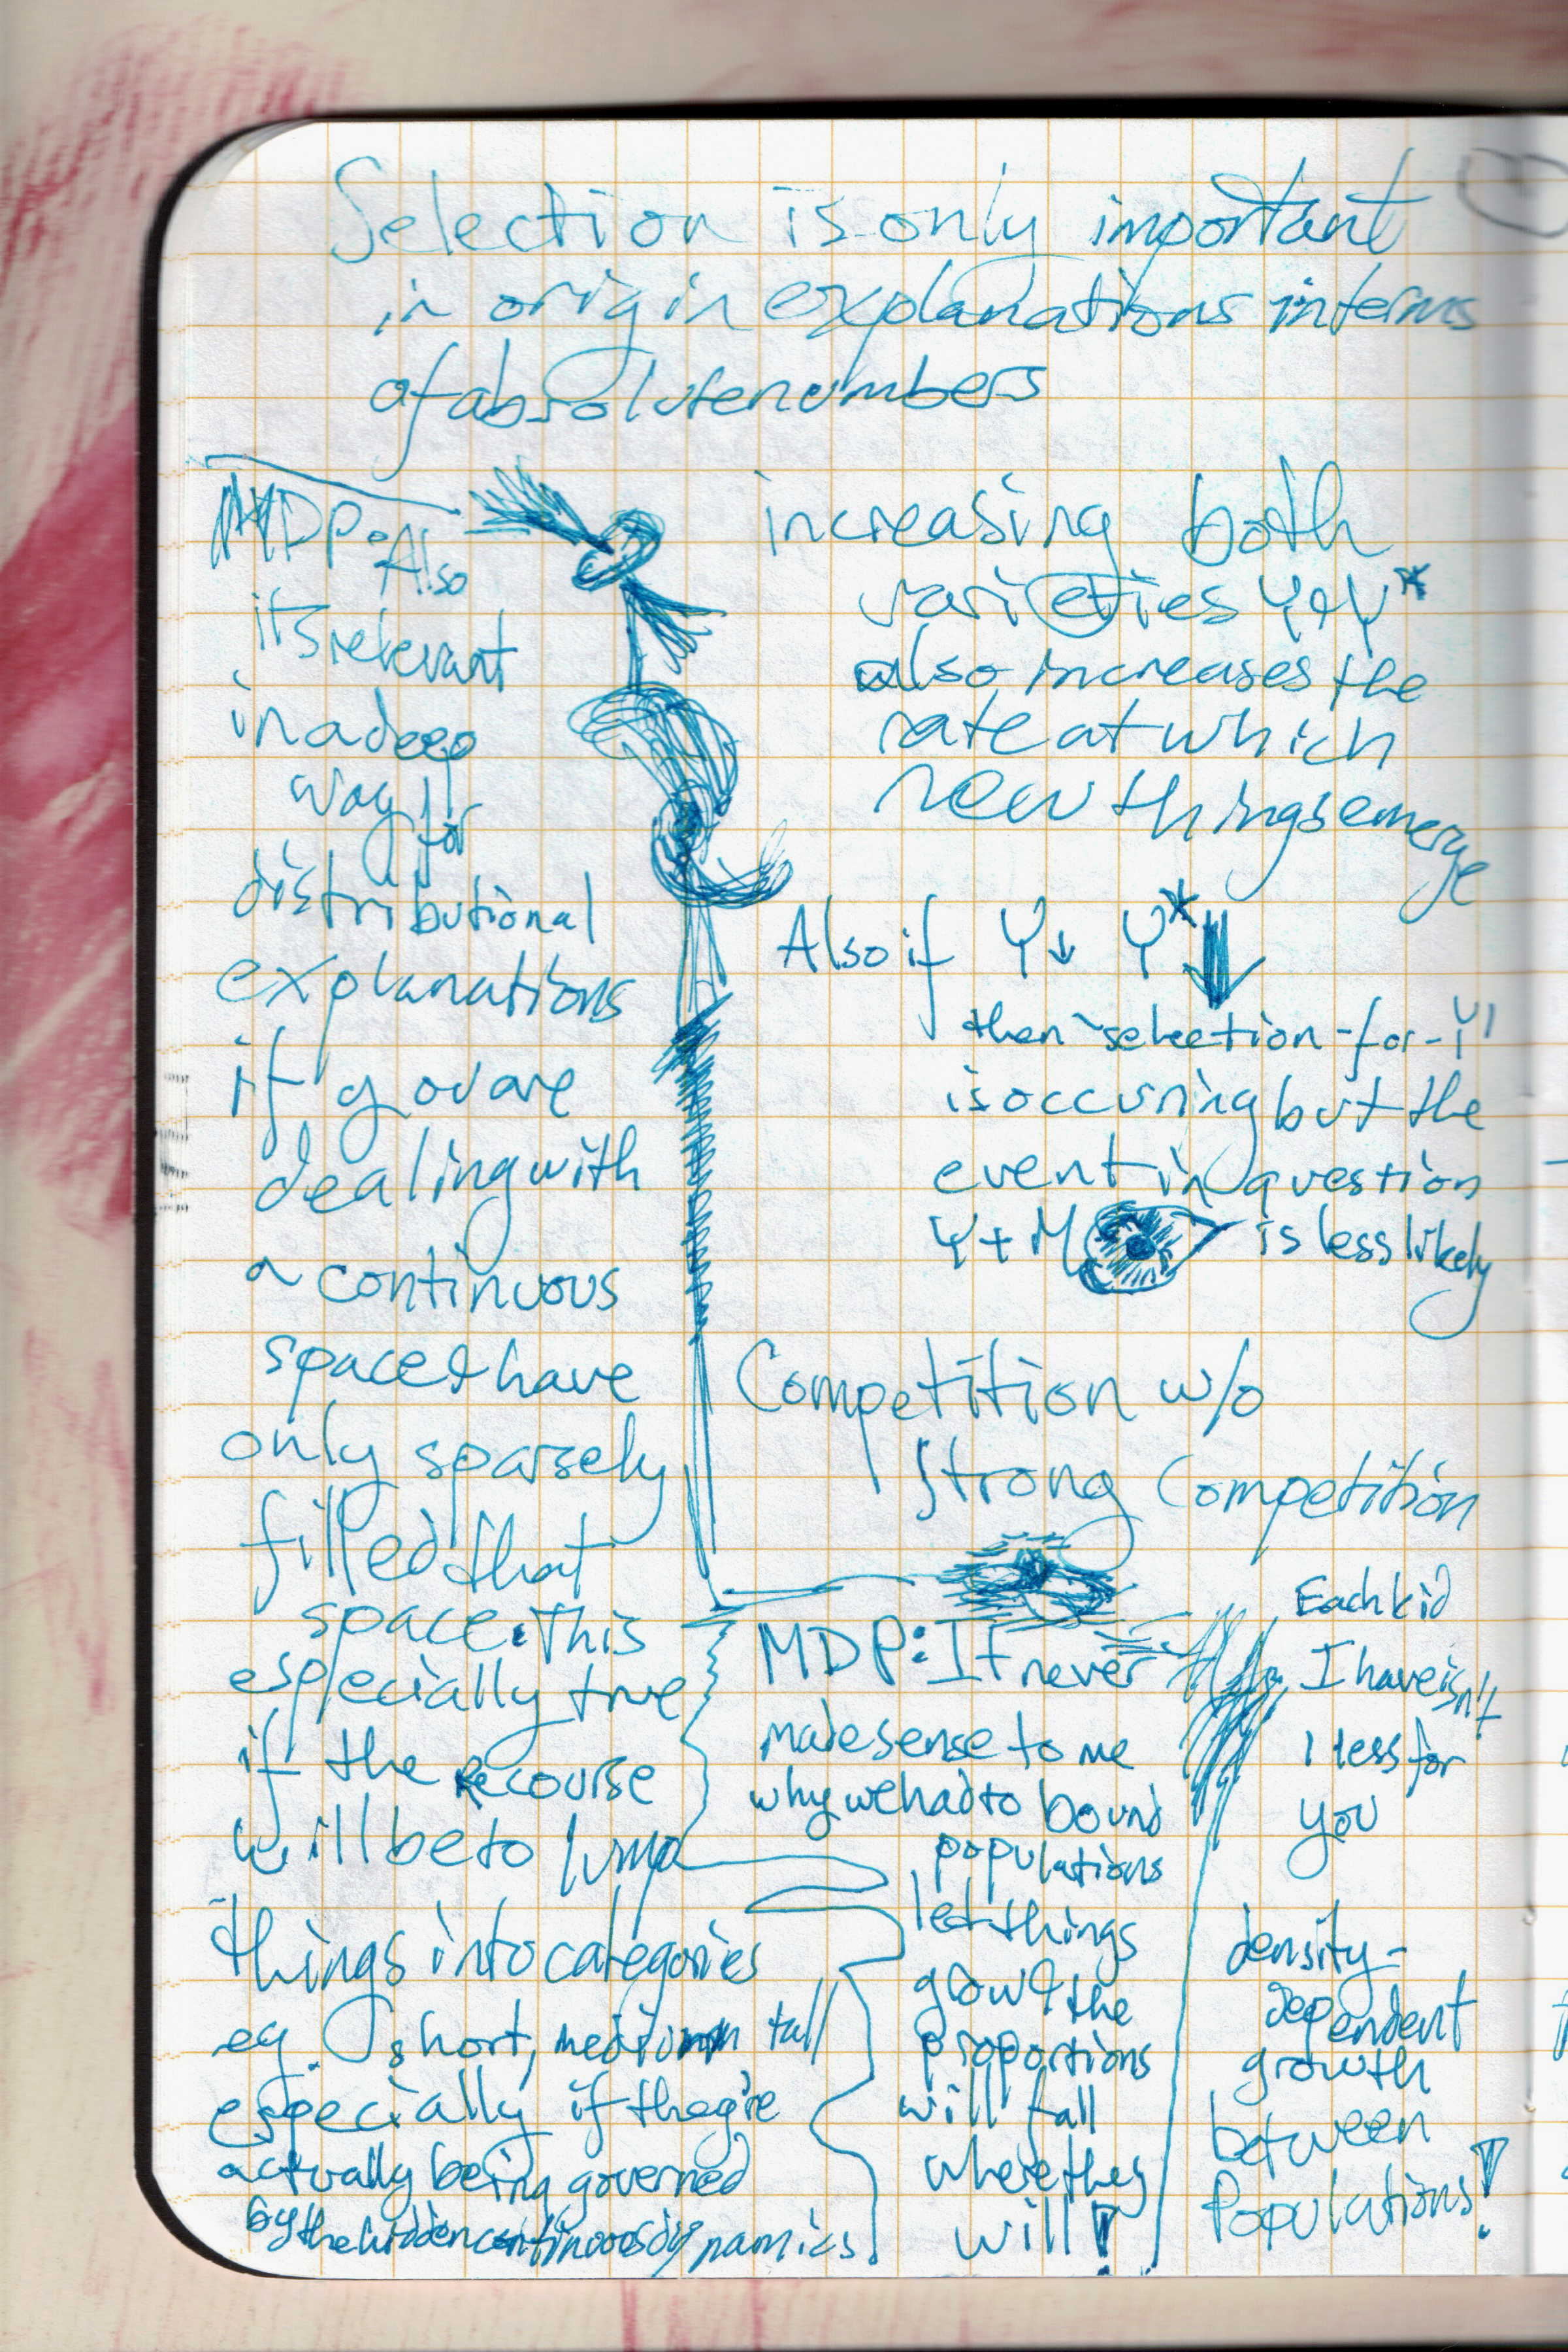 Selection is only important
in origin explanations in terms
of absolute numbers
MDP: Also
its relevant
in a deep
way for
distributional
explanations
if you are
dealing with
a continuous
space & have
only sparsely
filled that
space. This
especially true
if the recourse
will be to lump
things into categories
eg. short, medium tall
especially if they're
actually being governed
by the hidden continuous dynamics
increasing both
varieties Y & Y*
also increases the
rate at which
new things emerge
Also if Y↓ Y*↓
then "selection-for-Y"
is occuring but the
event in question
Y + M is less likely
Competition w/o
strong competition
MDP: It never
made sense to me
why we had to bound
populations
let things
grow & the
proportions
will fall
where they
will!
Each kid
I have isn't
1 less for
you
density-
dependent
growth
between
populations!